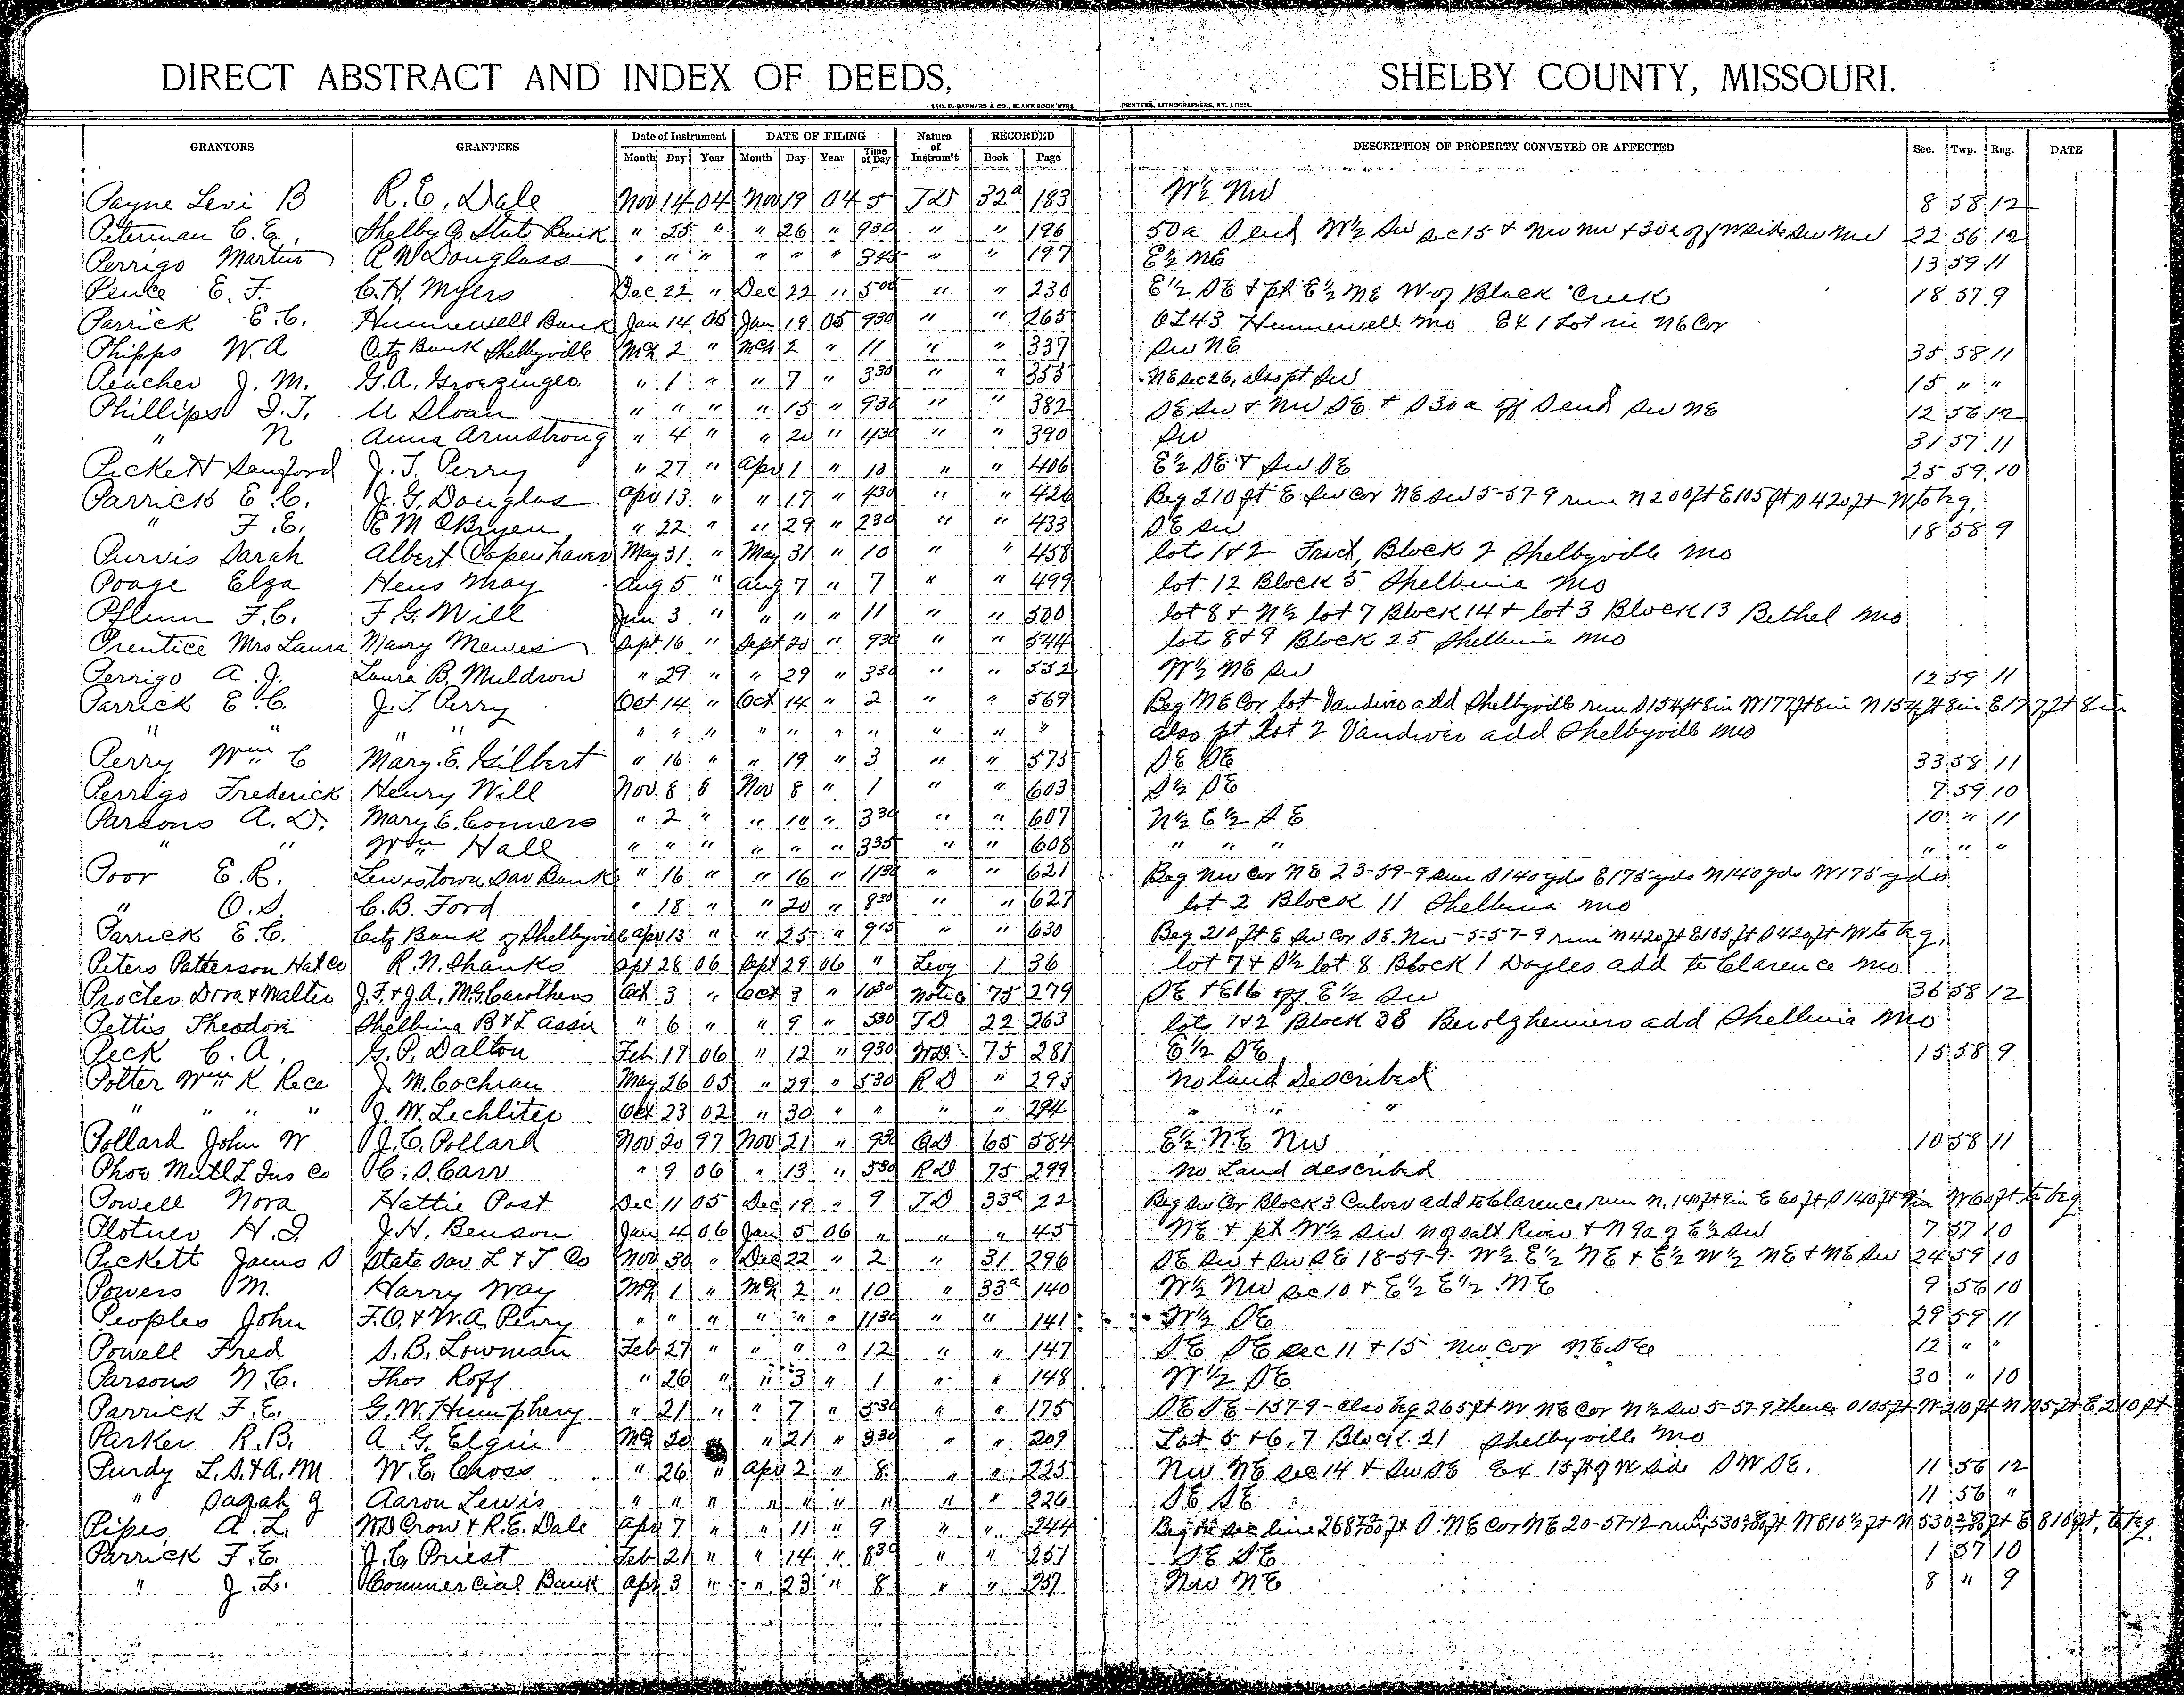 DIRECT ABSTRACT AND INDEX OF DEEDS, SHELBY COUNTY, MISSOURI.
GEO. D. BARNARD & CO., BLANK BOOK MFRS PRINTERS, LITHOGRAPHERS, ST. LOUIS.
GRANTORS GRANTEES Date of Instrument DATE OF FILING Nature of Instrum't RECORDED DESCRIPTION OF PROPERTY CONVEYED OR AFFECTED Sec. Twp. Rng. DATE
Month Day Year Month Day Year Time of Day Book Page
Payne Levi B R.E. Dale Nov 14 04 Nov 19 04 5 TD 32a 183 W½ NW 8 58 12
Peterman C.E. Shelby Co State Bank " 25 " " 26 " 930 " " 196 50a S end W½ SW Sec 15 & NW NW & 30a off N side SW NW 22 56 12
Perrigo Martin R W Douglass " " " " " " 345 " " 197 E½ NE 13 59 11
Pence E.F. C.H. Myers Dec 22 " Dec 22 " 500 " " 230 E½ SE & pt E½ NE W of Black Creek 18 57 9
Parrick E.C. Hunnewell Bank Jan 14 05 Jan 19 05 930 " " 265 OL43 Hunnewell Mo Ex 1 Lot in NE Cor
Phipps W.A Citz Bank Shelbyville Mch 2 " Mch 2 " 11 " " 337 SW NE 35 58 11
Peacher J.M. G.A. Groezinger " 1 " " 7 " 330 " " 353 NE Sec 26, also pt SW 15 " "
Phillips I.T. U Sloan " " " " 15 " 930 " " 382 SE SW & NW SE & S 30 a off S end SW NE 12 56 12
" N Anna Armstrong " 4 " " 20 " 430 " " 390 SW 31 57 11
Pickett Sanford J.T. Perry " 27 " Apr 1 " 10 " " 406 E½ SE & SW SE 25 59 10
Parrick E.C. J.G. Douglas Apr 13 " " 17 " 430 " " 426 Beg 210 ft E SW Cor NE SW 5-57-9 run N 200 ft E 105 ft S 420 ft W to beg.
" F.E. E M OBryen " 22 " " 29 " 230 " " 433 SE SW 18 58 9
Purvis Sarah Albert Copenhaver May 31 " May 31 " 10 " " 458 lots 1 & 2 Fract, Block 2 Shelbyville Mo
Poage Elza Hens May Aug 5 " Aug 7 " 7 " " 499 lot 12 Block 5 Shelbina Mo
Pflum F.C. F.G. Will Jun 3 " " " " 11 " " 500 lot 8 & N½ lot 7 Block 14 & lot 3 Block 13 Bethel Mo
Prentice Mrs Laura Mary Mewes Sept 16 " Sept 20 " 930 " " 544 lots 8 & 9 Block 25 Shelbina Mo
Perrigo A.J. Laura B. Muldrow " 29 " " 29 " 330 " " 552 W½ NE SW 12 59 11
Parrick E.C. J.T. Perry Oct 14 " Oct 14 " 2 " " 569 Beg NE Cor lot Vandiver add Shelbyville run S 154 ft 8 in W 177 ft 8 in N 154 ft 8 in E 177 ft 8 in
" " " " " " " " " " " " " " also pt Lot 2 Vandiver add Shelbyville Mo
Perry Wm C Mary E. Gilbert " 16 " " 19 " 3 " " 575 SE SE 33 58 11
Perrigo Frederick Henry Will Nov 8 8 Nov 8 " 1 " " 603 S½ SE 7 59 10
Parsons A.D. Mary E. Conners " 2 " " 10 " 330 " " 607 N½ E½ SE 10 " 11
" " Wm Hall " " " " " " 335 " " 608 " " " " " "
Poor E.R. Lewistown Sav Bank " 16 " " 16 " 1130 " " 621 Beg NW Cor NE 23-59-9 run S 140 yds E 175 yds N 140 yds W 175 yds
" O.S. C.B. Ford " 18 " " 20 " 830 " " 627 lot 2 Block 11 Shelbina Mo
Parrick E.C. Citz Bank of Shelbyville Apr 13 " " 25 " 915 " " 630 Beg 210 ft E SW Cor SE NW 5-57-9 run N 420 ft E 105 ft S 420 ft W to beg.
Peters Patterson Hat Co R.N. Shanks Sept 28 06 Sept 29 06 " Levy 1 36 lot 7 & S½ lot 8 Block 1 Doyles add to Clarence Mo
Procter Dora & Walter J.F. & J.A. McCarothers Oct 3 " Oct 3 " 1030 Notice 75 279 SE & E16 off E½ SW 36 58 12
Pettis Theodore Shelbina B & L Assn " 6 " " 9 " 530 TD 22 263 lots 1 & 2 Block 38 Berolzheimers add Shelbina Mo
Peck C.A. G.P. Dalton Feb 17 06 " 12 " 930 WD 75 281 E½ SE 15 58 9
Potter Wm K Rece J.M. Cochran May 26 05 " 29 " 530 RD " 293 No land Described
" " " " J.W. Lechliter Oct 23 02 " 30 " " " " 294 " " "
Pollard John W J.C. Pollard Nov 20 97 Nov 21 " 930 QD 65 584 E½ NE NW 10 58 11
Phoe Mutl L Ins Co C.S. Carr " 9 06 " 13 " 530 RD 75 299 No Land described
Powell Nora Hattie Post Dec 11 05 Dec 19 " 9 TD 33a 22 Beg SW Cor Block 3 Culver add to Clarence run N. 140 ft 9 in E 60 ft S 140 ft 9 in W 60 ft to beg
Plotner H.I. J.H. Benson Jan 4 06 Jan 5 06 " " " 45 NE & pt W½ SW N of Salt River & N 9a of E½ SW 7 57 10
Pickett James S State Sav L & T Co Nov 30 " Dec 22 " 2 " 31 296 SE SW & SW SE 18-59-9 W½ E½ NE & E½ W½ NE & NE SW 24 59 10
Powers M. Harry Way Mch 1 " Mch 2 " 10 " 33a 140 W½ NW Sec 10 & E½ E½ NE 9 56 10
Peoples John F.O. & W.A. Perry " " " " " " 1130 " " 141 W½ SE 29 59 11
Powell Fred S.B. Lowman Feb 27 " " " " 12 " " 147 SE SE Sec 11 & 15 NW Cor NE SE 12 " "
Parsons N.C. Thos Roff " 26 " " 3 " 1 " " 148 W½ SE 30 " 10
Parrick F.E. G.W. Humphery " 21 " " 7 " 530 " " 175 SE SE-1-57-9- also beg 265 ft W NE Cor N½ SW 5-57-9 thence S 105 ft W 210 ft N 105 ft E 210 ft
Parker R.B. A.G. Elgin Mch 20 " " 21 " 330 " " 209 Lot 5 & 6, 7 Block 21 Shelbyville Mo
Purdy L.S. & A.M W.E. Choss " 26 " Apr 2 " 8 " " 225 NW NE Sec 14 & SW SE Ex 15 ft of W side SW SE. 11 56 12
" Sarah J Aaron Lewis " " " " " " " " " 226 SE SE 11 56 "
Pipes A.L. WD Crow & R.E. Dale Apr 7 " " 11 " 9 " " 244 Beg on Sec line 268 ft S. NE Cor NE 20-57-12 run S 530 ft W 810½ ft N 530 ft E 810 ft, to beg
Parrick F.E. J.C. Priest Feb 21 " " 14 " 830 " " 251 SE SE 1 57 10
" J.L. Commercial Bank Apr 3 " " 23 " 8 " " 257 NW NE 8 " 9